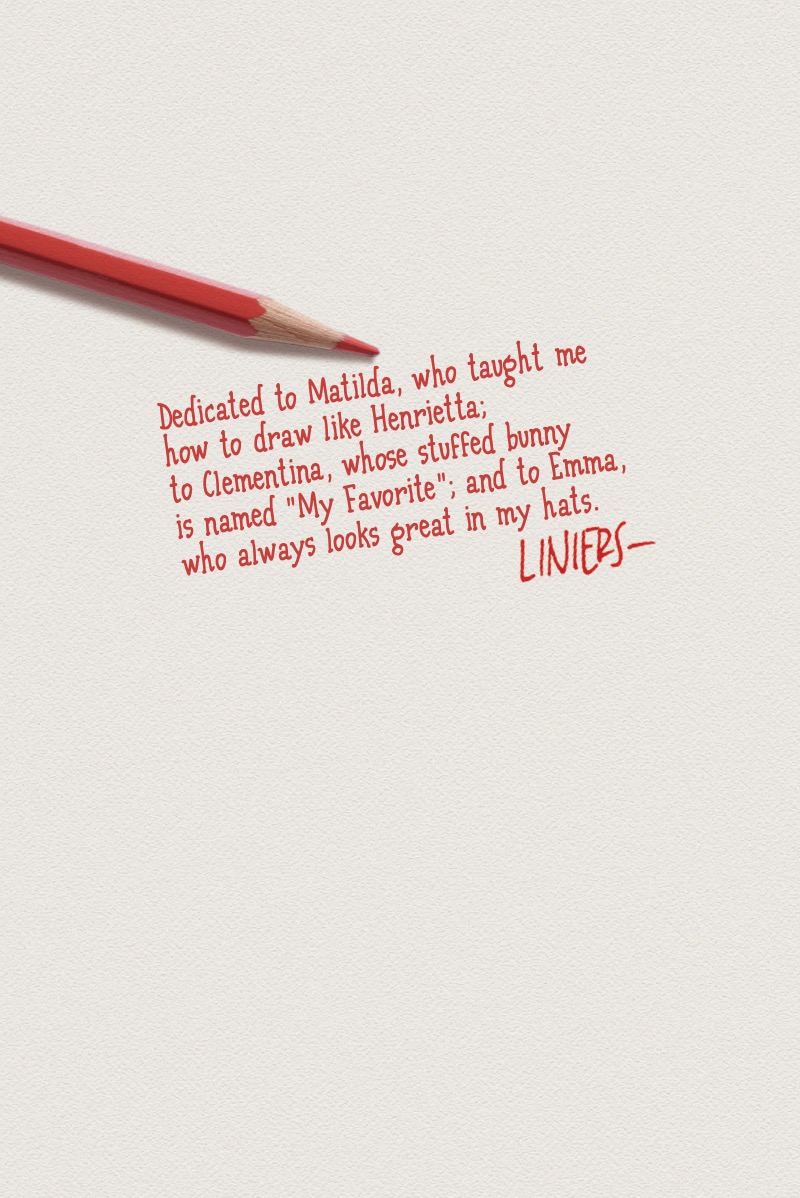 Dedicated to Matilda, who taught me
how to draw like Henrietta;
to Clementina, whose stuffed bunny
is named "My Favorite"; and to Emma,
who always looks great in my hats.
LINIERS—